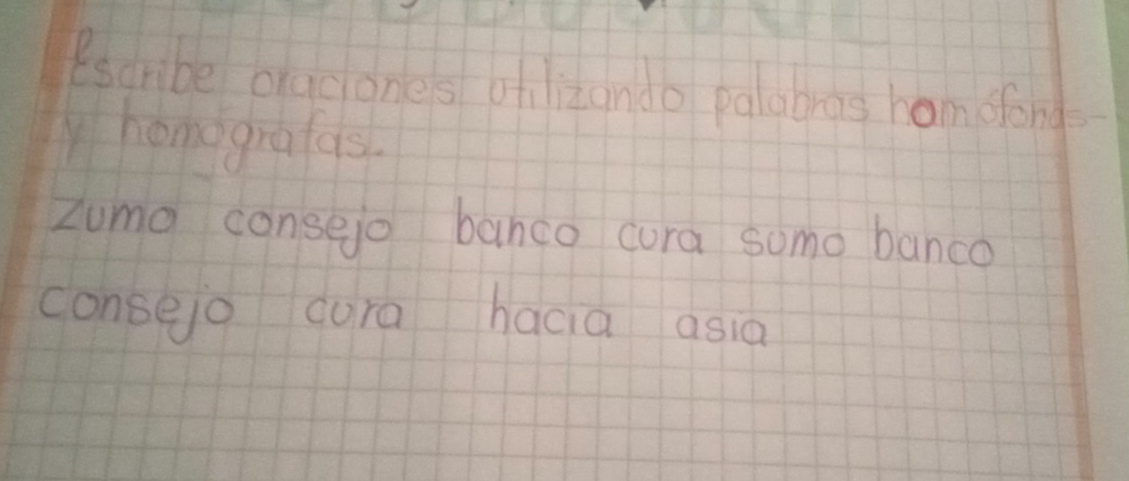 Escribe oraciones utilizando palabras homófonas
y homografas.
zumo consejo banco cura sumo banco
consejo cura hacia asia